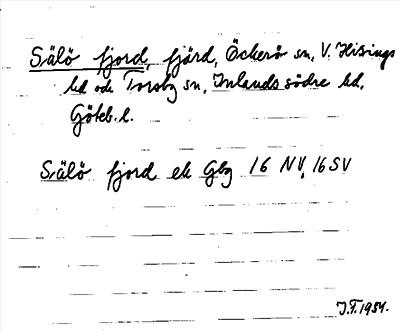 Sälö fjord, fjärd, Öckerö sn, V. Hisings
hd och Torsby sn, Inlands södre hd,
Göteb. l.
Sälö fjord ek Gbg 16 NV, 16 SV
J.F. 1954.